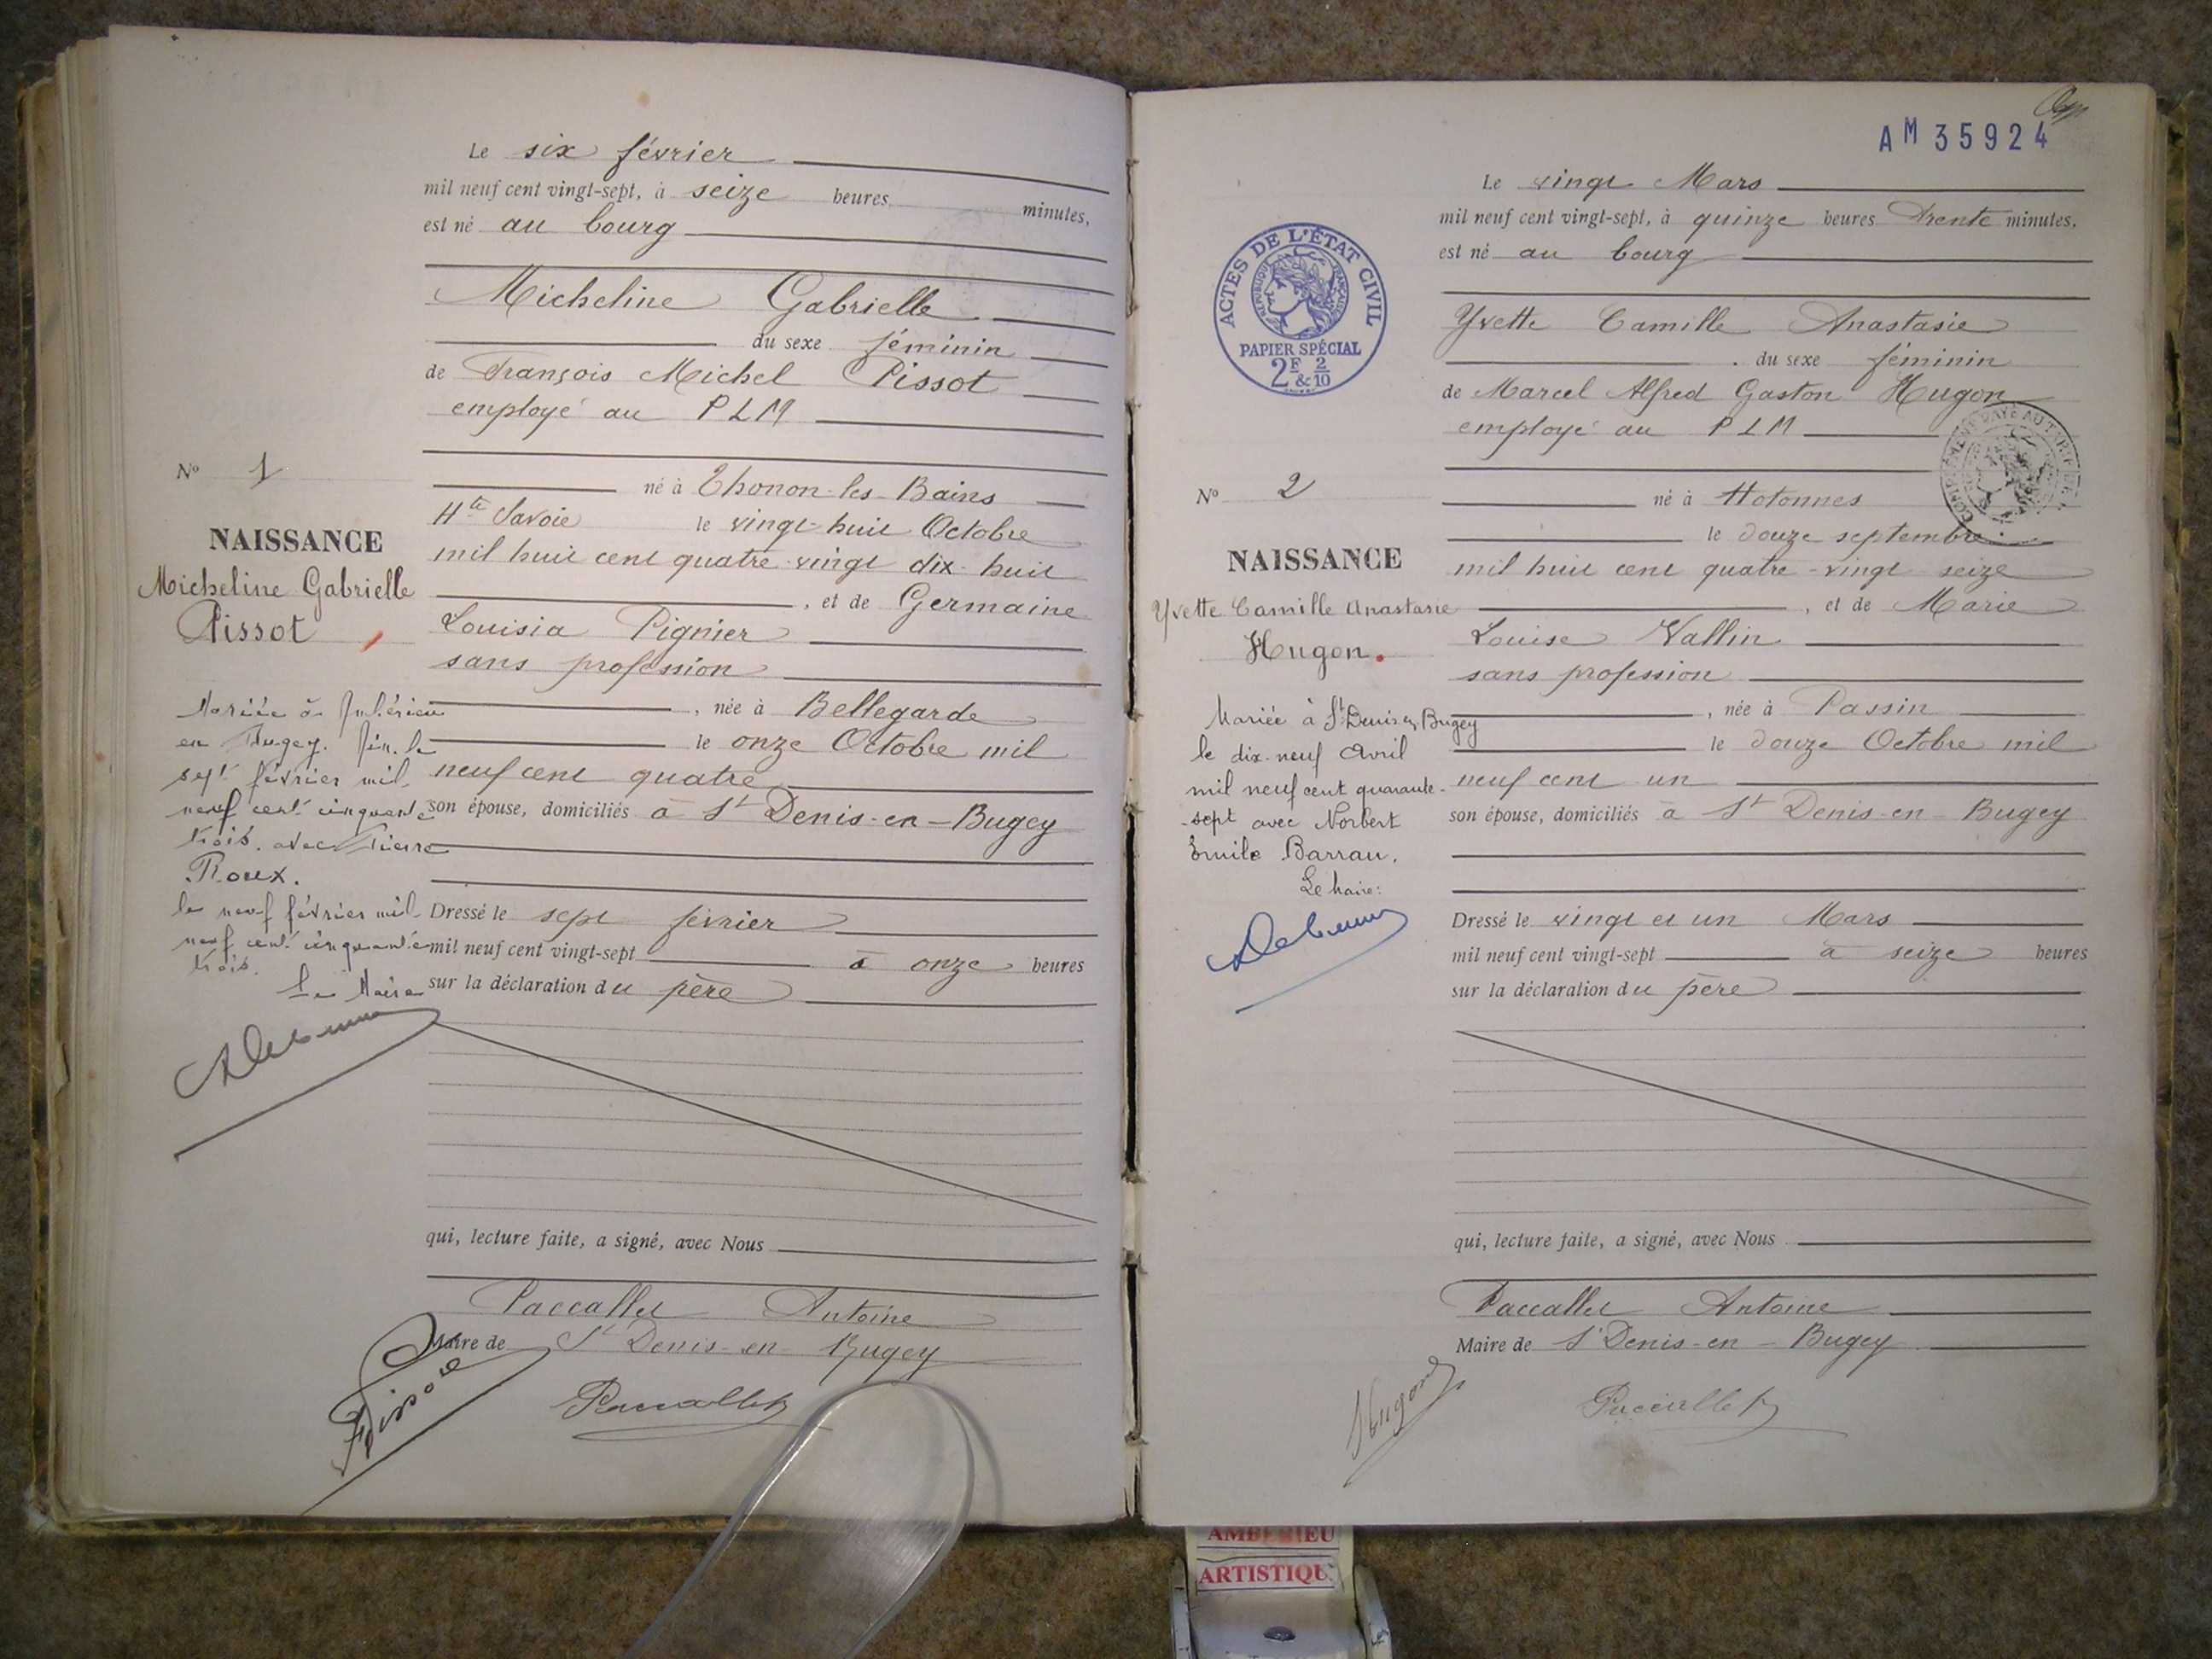 Le six février
mil neuf cent vingt-sept, à seize heures minutes,
est né au bourg
Micheline Gabrielle
du sexe féminin
de François Michel Pissot
employé au PLM
né à Thonon-les-Bains
Hte Savoie le vingt-huit Octobre
mil huit cent quatre-vingt dix-huit
, et de Germaine
Louisia Pignier
sans profession
, née à Bellegarde
le onze Octobre mil
neuf cent quatre
son épouse, domiciliés à St Denis-en-Bugey
Dressé le sept février
mil neuf cent vingt-sept à onze heures
sur la déclaration du père
qui, lecture faite, a signé, avec Nous
Paccallet Antoine
Maire de St Denis-en-Bugey
Pissot
Paccallet
No 1
NAISSANCE
Micheline Gabrielle
Pissot
Mariée à Ambérieu
en Bugey. le
sept février mil
neuf cent cinquante
trois. avec Pierre
Roux.
le neuf février mil
neuf cent cinquante
trois.
Le Maire
AM 35924
ACTES DE L'ÉTAT CIVIL
RÉPUBLIQUE FRANÇAISE
PAPIER SPÉCIAL
2F & 2/10
Le vingt Mars
mil neuf cent vingt-sept, à quinze heures Trente minutes,
est né au bourg
Yvette Camille Anastasie
du sexe féminin
de Marcel Alfred Gaston Hugon
employé au PLM
né à Hotonnes
le douze septembre
mil huit cent quatre-vingt seize
, et de Marie
Louise Vallin
sans profession
, née à Passin
le douze Octobre mil
neuf cent un
son épouse, domiciliés à St Denis-en-Bugey
Dressé le vingt et un Mars
mil neuf cent vingt-sept à seize heures
sur la déclaration du père
qui, lecture faite, a signé, avec Nous
Paccallet Antoine
Maire de St Denis-en-Bugey
Hugon
Paccallet
No 2
NAISSANCE
Yvette Camille Anastasie
Hugon.
Mariée à St Denis en Bugey
le dix-neuf Avril
mil neuf cent quarante-
sept avec Norbert
Emile Barrau.
Le Maire:
AMBERIEU
ARTISTIQU